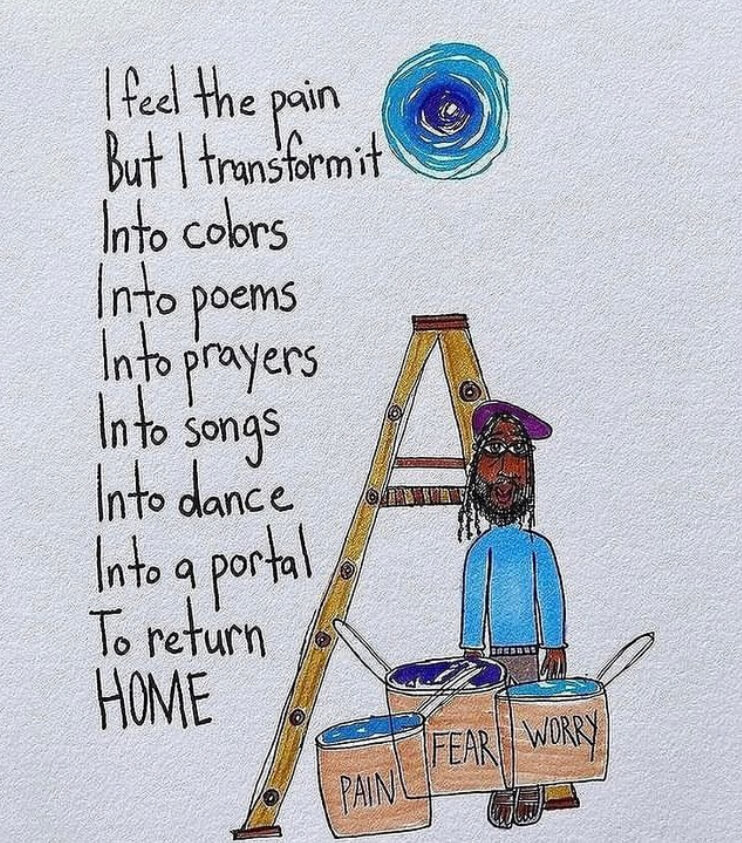 I feel the pain
But I transform it
Into colors
Into poems
Into prayers
Into songs
Into dance
Into a portal
To return
HOME
PAIN
FEAR
WORRY